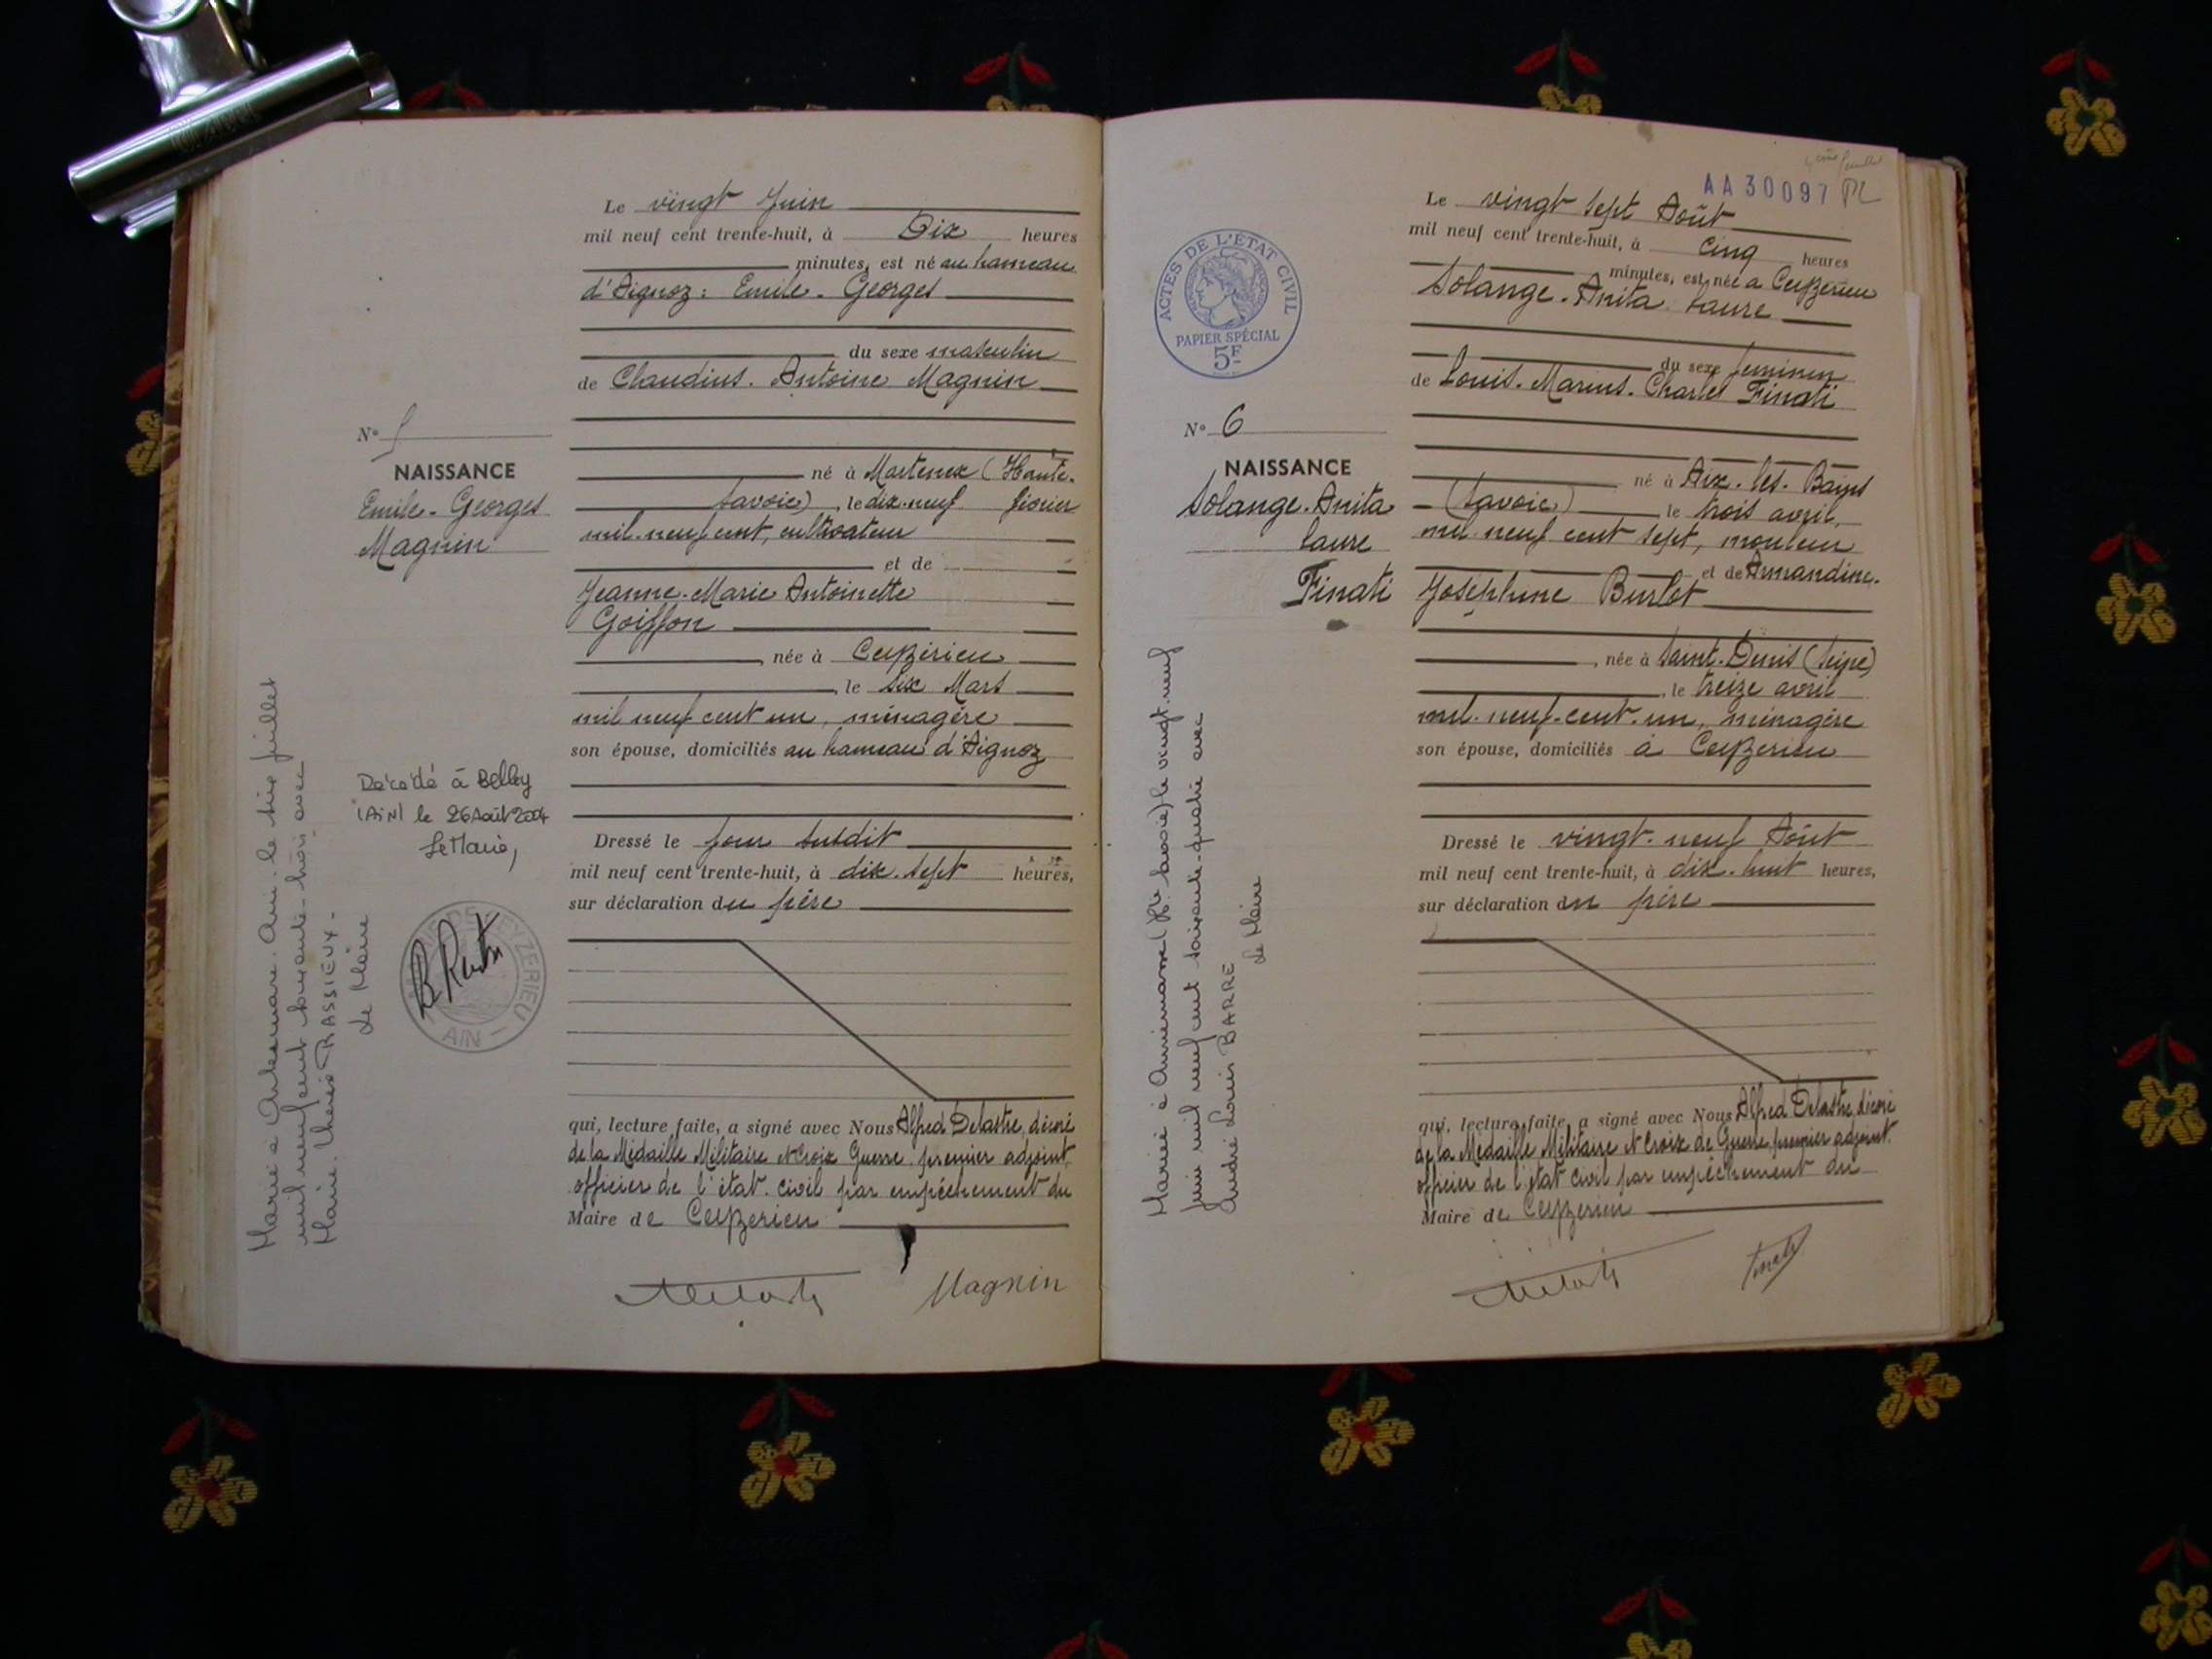 Le vingt Juin
mil neuf cent trente-huit, à Dix heures
minutes, est né au hameau
d'Aignoz : Emile - Georges
du sexe masculin
de Claudius. Antoine Magnin
né à (Haute-
Savoie), le dix-neuf février
mil-neuf cent, cultivateur
et de
Jeanne-Marie Antoinette
Goiffon
, née à Ceyzérieu
, le six Mars
mil neuf cent un, ménagère
son épouse, domiciliés au hameau d'Aignoz
Dressé le jour susdit
mil neuf cent trente-huit, à dix-sept heures,
sur déclaration du père
qui, lecture faite, a signé avec Nous Alfred Delastre, décoré
de la Médaille Militaire et Croix Guerre, premier adjoint,
officier de l'état-civil par empêchement du
Maire de Ceyzerieu
Magnin
N° 5
NAISSANCE
Emile-Georges
Magnin
Décédé à Belley
(AIN) le 26 Août 2004
Le Maire,
CEYZERIEU
- AIN -
Marié à Artemare. Ain. le six juillet
mil neuf cent soixante-trois avec
Marie. Thérèse RASSIEUX-
Le Maire
AA30097
Le vingt sept Août
mil neuf cent trente-huit, à Cinq heures
minutes, est née à Ceyzerieu
Solange-Anita Laure
du sexe féminin
de Louis-Marius-Charles Finati
né à Aix-les-Bains
(Savoie) le trois avril,
mil neuf cent sept, mouleur
et de Armandine-
Joséphine Burlot
, née à Saint-Denis (Seine)
, le treize avril
mil-neuf-cent-un, ménagère
son épouse, domiciliés à Ceyzerieu
Dressé le vingt-neuf Août
mil neuf cent trente-huit, à dix-huit heures,
sur déclaration du père
qui, lecture faite, a signé avec Nous Alfred Delastre, décoré
de la Médaille Militaire et Croix de Guerre, premier adjoint,
officier de l'état civil par empêchement du
Maire de Ceyzerieu
ACTES DE L'ÉTAT CIVIL
PAPIER SPÉCIAL
5F
N° 6
NAISSANCE
Solange-Anita
Laure
Finati
Mariée à Annemasse (Hte Savoie) le vingt-neuf
juin mil neuf cent soixante-quatre avec
André Louis BARRE
Le Maire